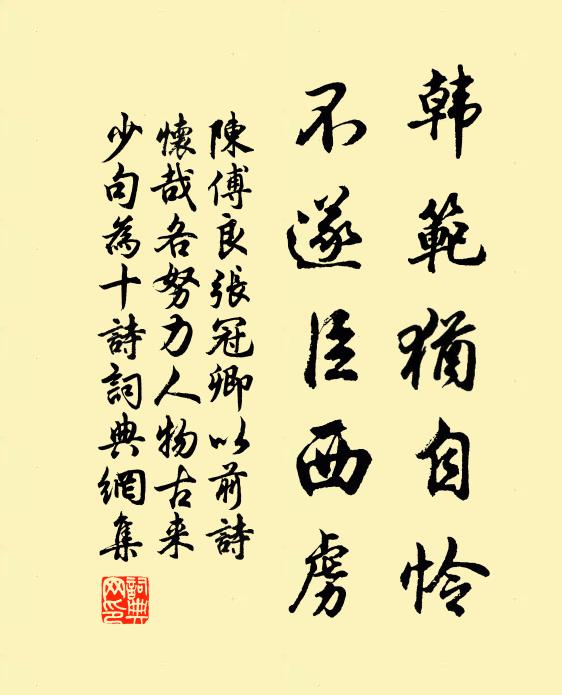 韩範猶自怜
不遂臣西虏
陳傅良張冠卿以前詩
懷哉各努力人物古来
少句為十詩詞典網集
詞典网印